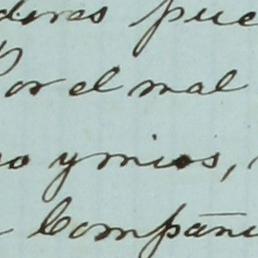 deras pue
Por el mal
o y mios,
Compañi